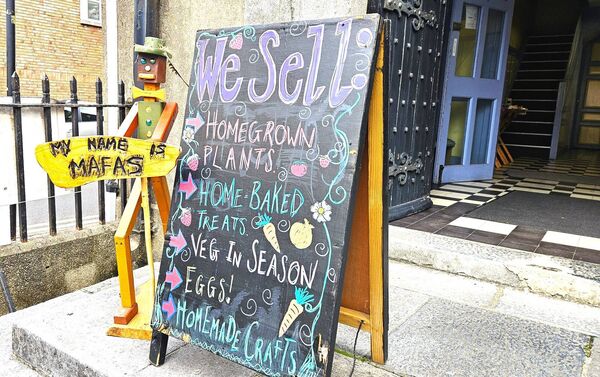 We Sell:
HOMEGROWN
PLANTS.
HOME-BAKED
TREATS.
VEG IN SEASON
EGGS!
HOMEMADE CRAFTS
MY NAME IS
MAFAS